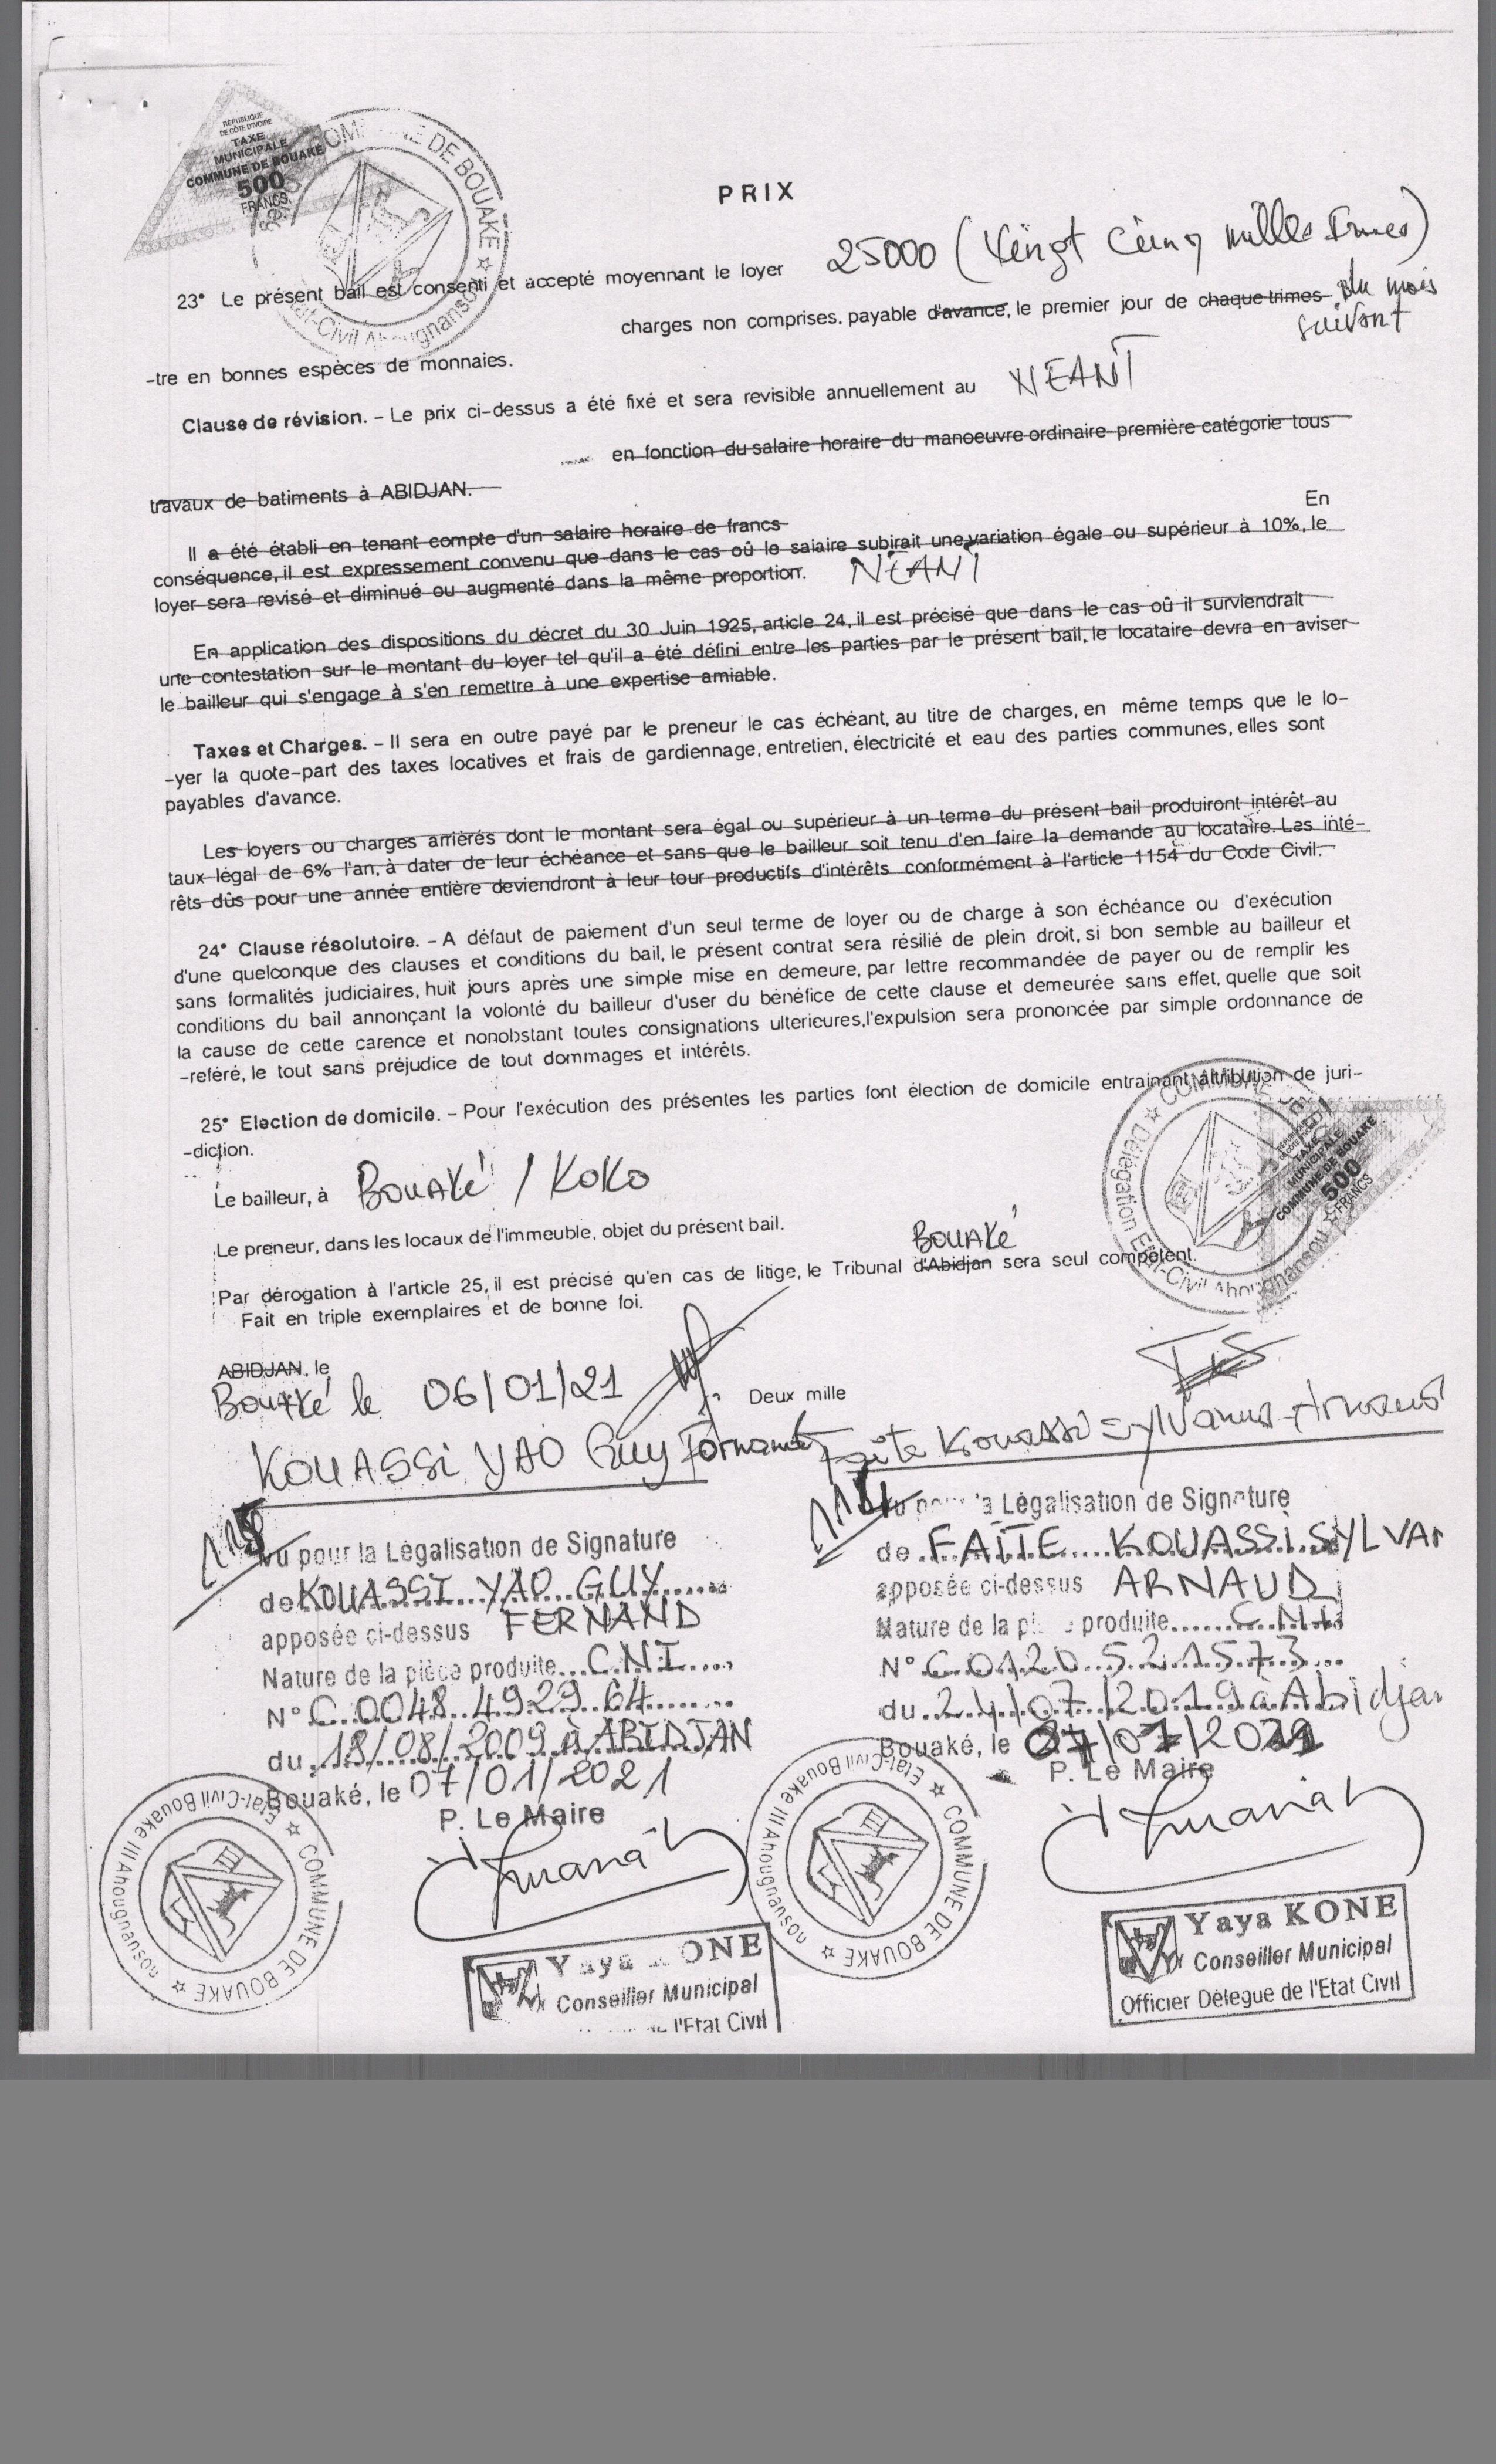 REPUBLIQUE
DE CÔTE D'IVOIRE
TAXE
MUNICIPALE
COMMUNE DE BOUAKE
500
FRANCS
COMMUNE DE BOUAKE ☆
Etat-Civil Ahougnansou
PRIX
23° Le présent bail est consenti et accepté moyennant le loyer 25000 (Vingt Cinq mille Francs)
charges non comprises, payable d'avance, le premier jour de chaque trimes- du mois
suivant
-tre en bonnes espèces de monnaies.
Clause de révision. – Le prix ci-dessus a été fixé et sera revisible annuellement au NEANT
en fonction du salaire horaire du manoeuvre ordinaire première catégorie tous
travaux de batiments à ABIDJAN.
Il a été établi en tenant compte d'un salaire horaire de francs En
conséquence, il est expressement convenu que dans le cas où le salaire subirait une variation égale ou supérieur à 10%, le
loyer sera revisé et diminué ou augmenté dans la même proportion. NEANT
En application des dispositions du décret du 30 Juin 1925, article 24, il est précisé que dans le cas où il surviendrait
une contestation sur le montant du loyer tel qu'il a été défini entre les parties par le présent bail, le locataire devra en aviser
le bailleur qui s'engage à s'en remettre à une expertise amiable.
Taxes et Charges. – Il sera en outre payé par le preneur le cas échéant, au titre de charges, en même temps que le lo-
-yer la quote-part des taxes locatives et frais de gardiennage, entretien, électricité et eau des parties communes, elles sont
payables d'avance.
Les loyers ou charges arriérés dont le montant sera égal ou supérieur à un terme du présent bail produiront intérêt au
taux légal de 6% l'an, à dater de leur échéance et sans que le bailleur soit tenu d'en faire la demande au locataire. Les inté-
rêts dûs pour une année entière deviendront à leur tour productifs d'intérêts conformément à l'article 1154 du Code Civil.
24° Clause résolutoire. – A défaut de paiement d'un seul terme de loyer ou de charge à son échéance ou d'exécution
d'une quelconque des clauses et conditions du bail, le présent contrat sera résilié de plein droit, si bon semble au bailleur et
sans formalités judiciaires, huit jours après une simple mise en demeure, par lettre recommandée de payer ou de remplir les
conditions du bail annonçant la volonté du bailleur d'user du bénéfice de cette clause et demeurée sans effet, quelle que soit
la cause de cette carence et nonobstant toutes consignations ulterieures, l'expulsion sera prononcée par simple ordonnance de
-référé, le tout sans préjudice de tout dommages et intérêts.
25° Election de domicile. – Pour l'exécution des présentes les parties font élection de domicile entrainant attribution de juri-
-diction.
Le bailleur, à Bouaké / KOKO
Le preneur, dans les locaux de l'immeuble, objet du présent bail.
Bouaké
Par dérogation à l'article 25, il est précisé qu'en cas de litige, le Tribunal d'Abidjan sera seul compétent.
Fait en triple exemplaires et de bonne foi.
☆ COMMUNE
Délégation Etat-Civil Ahougnansou ☆
TAXE
MUNICIPALE
COMMUNE DE BOUAKE
500
FRANCS
ABIDJAN, le
Bouaké le 06/01/21 Deux mille
KOUASSI YAO Guy Fernand
Faîte Kouassi Sylvanus Arnaud
Vu pour la Légalisation de Signature
de KOUASSI YAO GUY
apposée ci-dessus FERNAND
Nature de la pièce produite C.N.I
N° C 0048 4929 64
du 18/08/2009 à ABIDJAN
Bouaké, le 07/01/2021
P. Le Maire
Vu pour la Légalisation de Signature
de FAITE KOUASSI SYLVAN
apposée ci-dessus ARNAUD
Nature de la pièce produite C.N.I
N° C 0120 52 1573
du 24/07/2019 à Abidjan
Bouaké, le 07/01/2021
P. Le Maire
Etat-Civil Bouake III Ahougnansou ☆ COMMUNE DE BOUAKE ☆
Etat-Civil Bouake III Ahougnansou ☆ COMMUNE DE BOUAKE ☆
Yaya KONE
Conseiller Municipal
de l'Etat Civil
Yaya KONE
Conseiller Municipal
Officier Délegue de l'Etat Civil